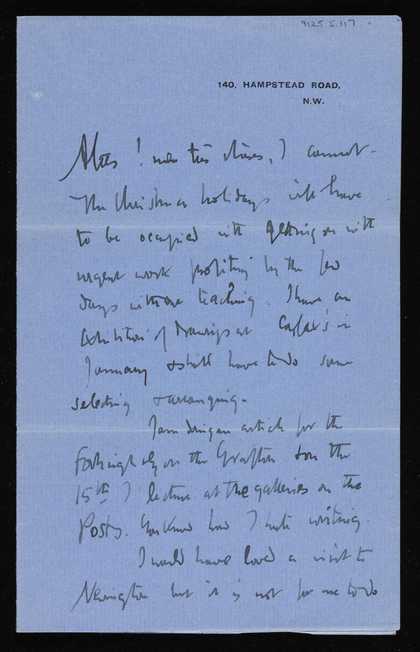 9125.5.117
140, HAMPSTEAD ROAD,
N.W.
Alas! I cannot.
The Christmas holidays will have
to be occupied with getting on with
urgent work profiting by the few
days without teaching. I have an
exhibition of drawings at Carfax's in
January & shall have to do some
selecting & arranging.
I am doing an article for the
Fortnightly on the Grafton & on the
15th I lecture at the galleries on the
Posts. You know how I hate writing.
I would have loved a visit to
Newington but it is not for me to do